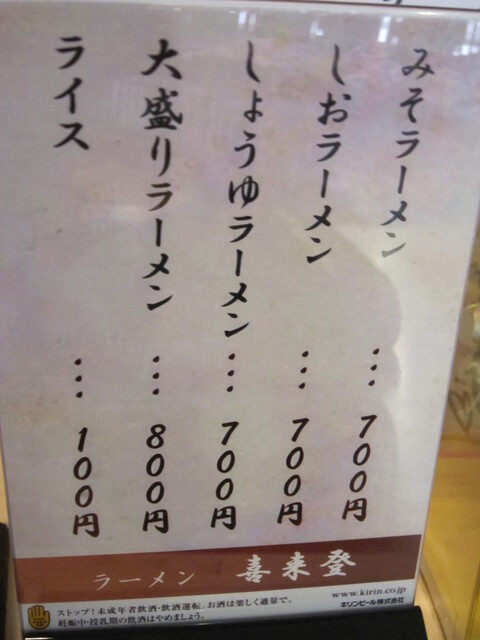 みそラーメン … 700円
しおラーメン … 700円
しょうゆラーメン … 700円
大盛りラーメン … 800円
ライス … 100円
ラーメン 喜来登
ストップ!未成年者飲酒・飲酒運転。お酒は楽しく適量で。
妊娠中・授乳期の飲酒はやめましょう。
www.kirin.co.jp
キリンビール株式会社